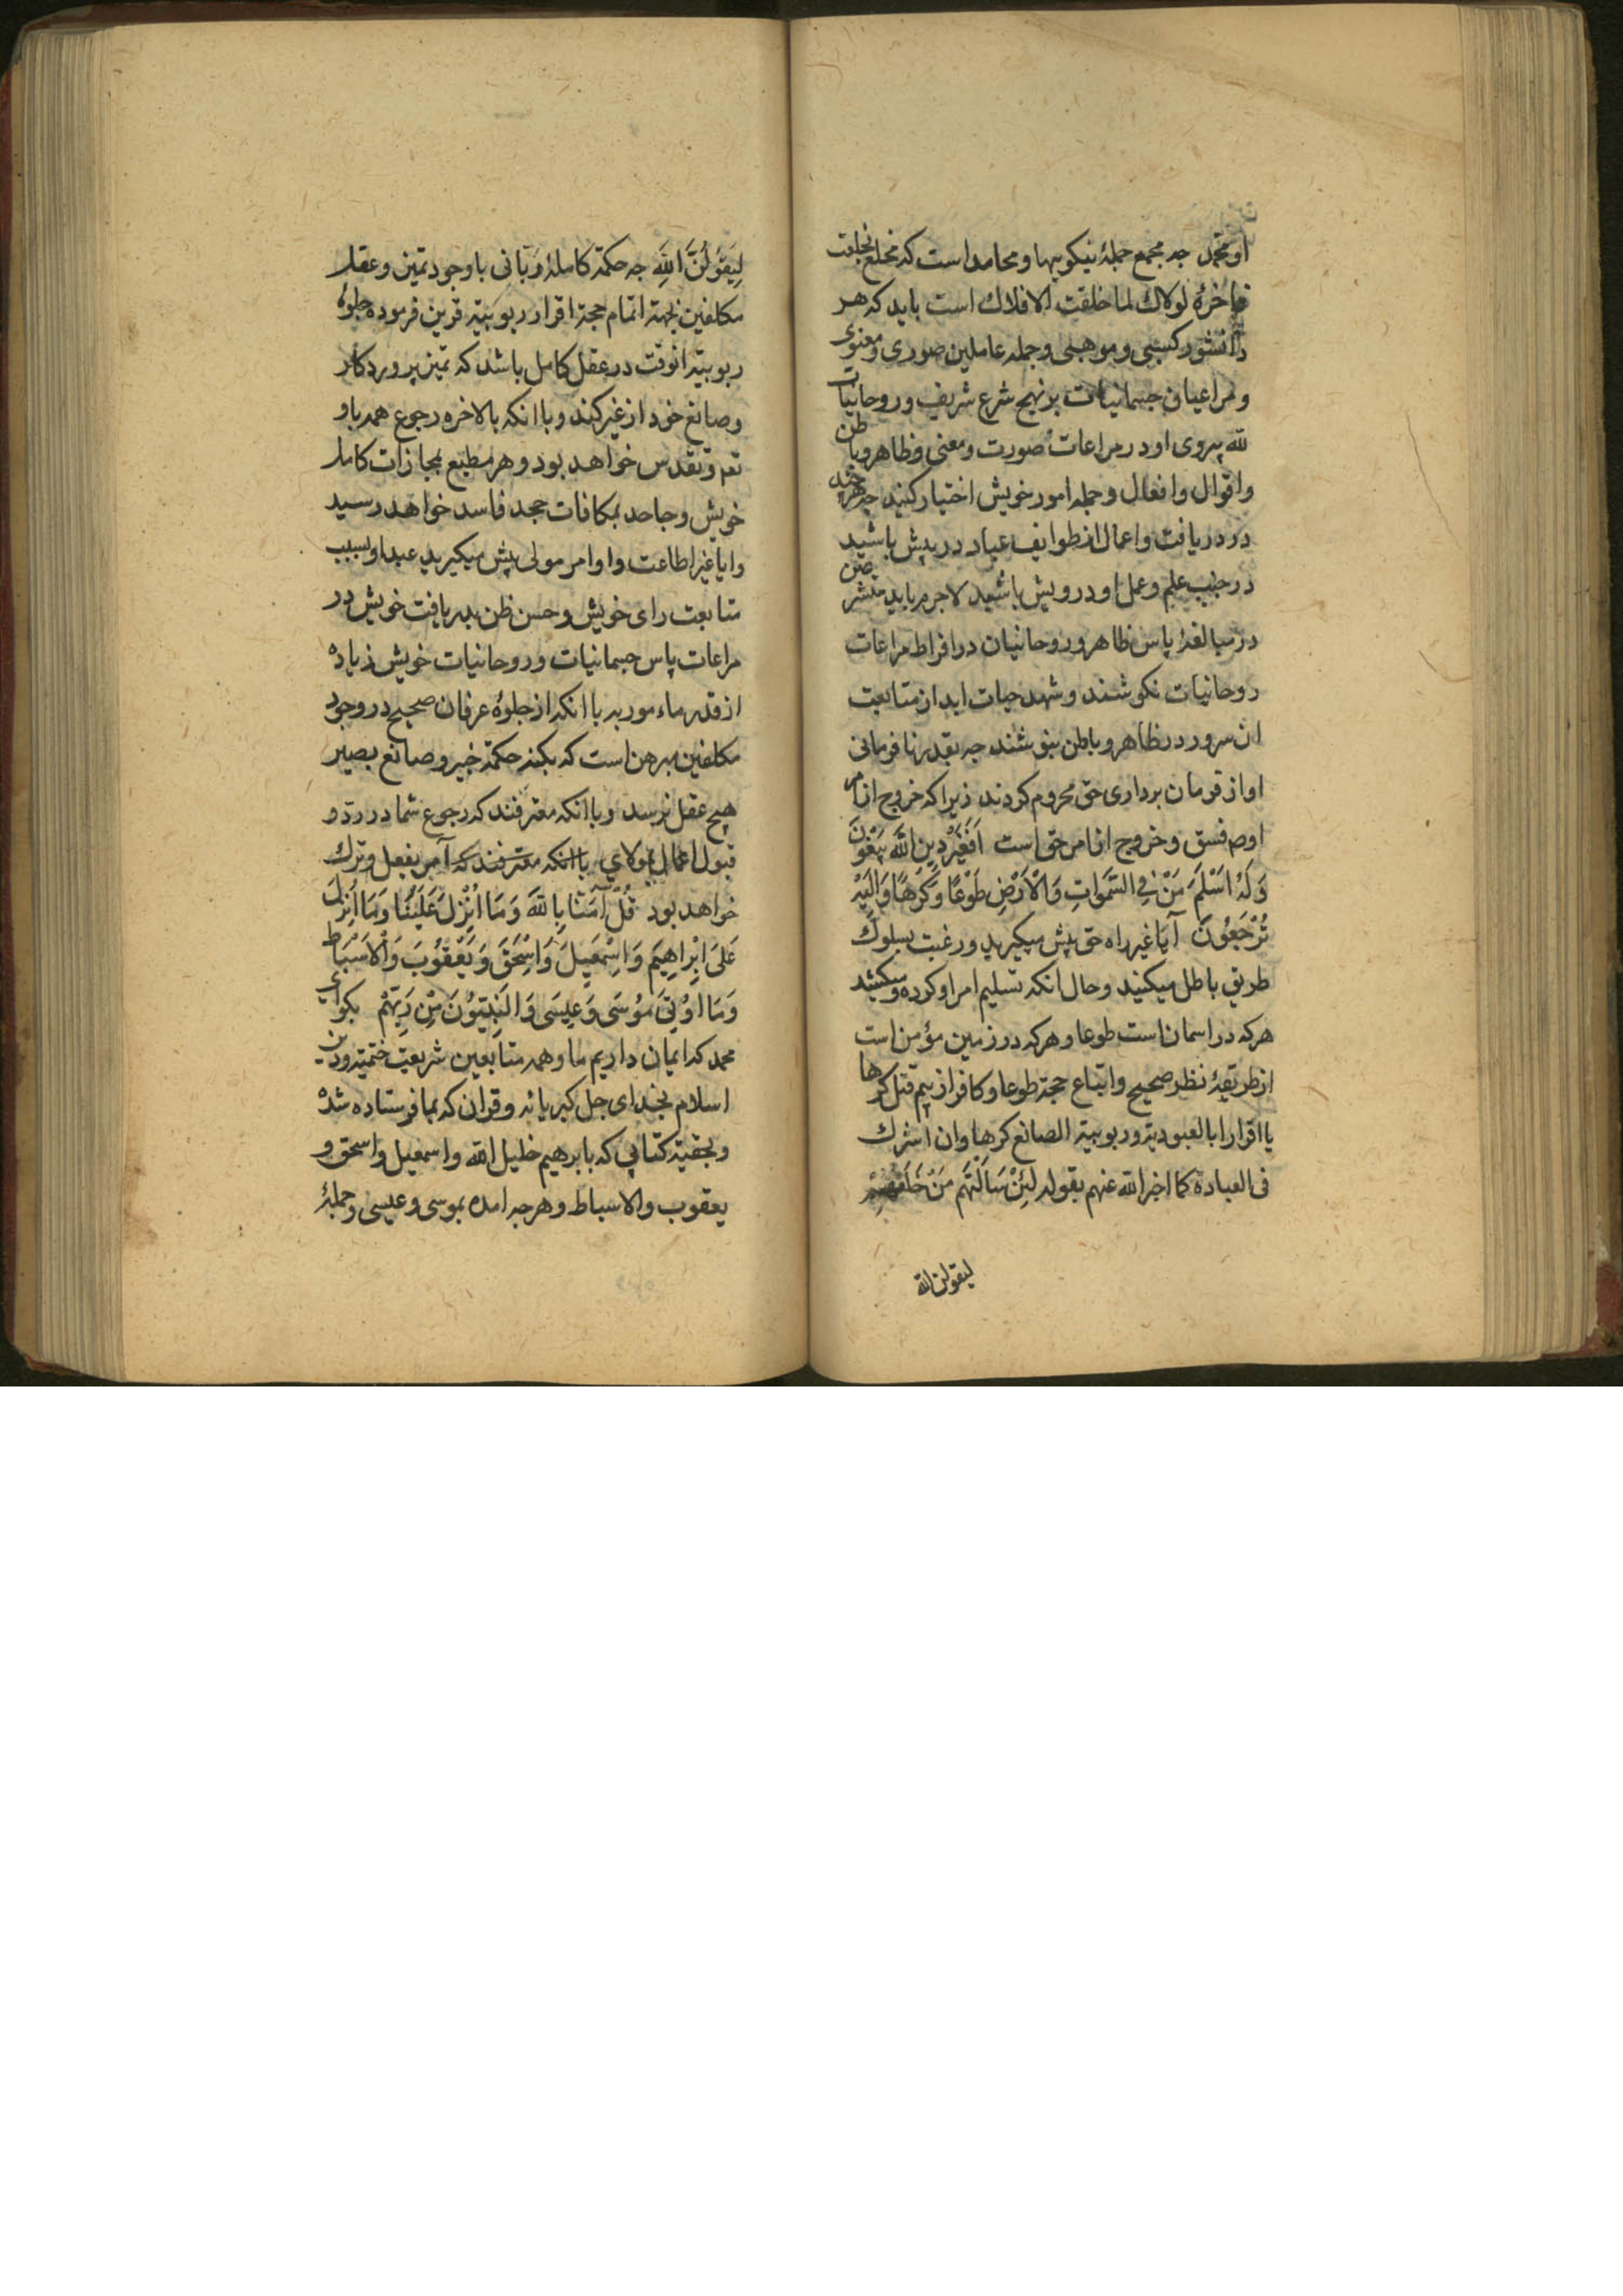 او محمد چه مجمع جملهٔ نیکویها و محامد است که مخلع بخلعت
فاخرهٔ لولاك لما خلقت الافلاك است باید که هر
دانشور کسبی و موهبی و جمله عاملین صوری و معنوی
و مراعیان جسمانیات بر نهج شرع شریف و روحانیات
لله پیروی او در مراعات صورت و معنی و ظاهر و باطن
و اقوال و افعال و جمله امور خویش اختیار کنید چه هرچند
در دریافت و اعمال از طوایف عباد در پیش باشید
در جنب علم و عمل او درویش باشید لاجرم باید
در مبالغهٔ پاس ظاهر و روحانیان در افراط مراعات
روحانیات نکوشند و شهد حیات ابد از متابعت
ان سرور در ظاهر و باطن بنوشند چه بقدر نافرمانی
او از فرمان برداری حق محروم کردند زیرا که خروج از امر
اوصم فسق و خروج از امر حق است اَفَغَیْرَ دِینِ اللهِ یَبْغُونَ
وَلَهُ اَسْلَمَ مَنْ فِی السَّمٰوَاتِ وَالْاَرْضِ طَوْعًا وَكَرْهًا وَاِلَیْهِ
تُرْجَعُونَ آیا غیر راه حق پیش میکیرید و رغبت بسلوك
طریق باطل میکنید و حال انکه تسلیم امر او کرده و میکند
هرکه در اسمان است طوعا و هرکه در زمین مؤمن است
از طریقهٔ نظر صحیح و اتباع حجة طوعا و کافر از بیم قتل کرها
یا اقرارا بالعبودیة و ربوبیة الصانع کرها وان اشرك
فی العبادة کما اخبر الله عنهم بقوله لَئِنْ سَاَلْتَهُمْ مَنْ خَلَقَهُمْ
لیقولن الله
لَیَقُولُنَّ اللهُ چه حکمة کاملهٔ ربانی با وجود تمیز و عقل
مکلفین بجهة اتمام حجة اقرار ربوبیة قرین فرموده جلوهٔ
ربوبیة انوقت در عقل کامل باشد که تمیز پروردکار
و صانع خود از غیر کند و با انکه بالاخره رجوع همه باو
تع و تقدس خواهد بود و هر مطیع بمجازات کامل
خویش و جاحد بمکافات جحد فاسد خواهد رسید
وایا غیر اطاعت و اوامر مولی پیش میکیرید عبدا و بسبب
متابعت رای خویش و حسن ظن بدریافت خویش در
مراعات پاس جسمانیات و روحانیات خویش زیاده
از قدر ماء مور به با انکه از جلوهٔ عرفان صحیح در وجود
مکلفین مبرهن است که بکنه حکمة خبیر و صانع بصیر
هیچ عقل نرسد و با انکه معترفند که رجوع شما در ردّ و
قبول اعمال بمولای با انکه معترفند که آمر بفعل و ترك
خواهد بود قُلْ آمَنَّا بِاللهِ وَمَا اُنْزِلَ عَلَیْنَا وَمَا اُنْزِلَ
عَلَی اِبْرٰاهِیمَ وَاِسْمٰعِیلَ وَاِسْحٰقَ وَیَعْقُوبَ وَالْاَسْبَاطِ
وَمَا اُوتِیَ مُوسٰی وَعِیسٰی وَالنَّبِیُّونَ مِنْ رَبِّهِمْ بکو ای
محمد که ایمان داریم ما و همه متابعین شریعت ختمیه و دین
اسلام بخدای جل کبریائه و قران که بما فرستاده شده
و بحقیة کتابی که بابرهیم خلیل الله و اسمعیل و اسحق و
یعقوب و الاسباط و هرچه امده بموسی و عیسی و جملهٔ